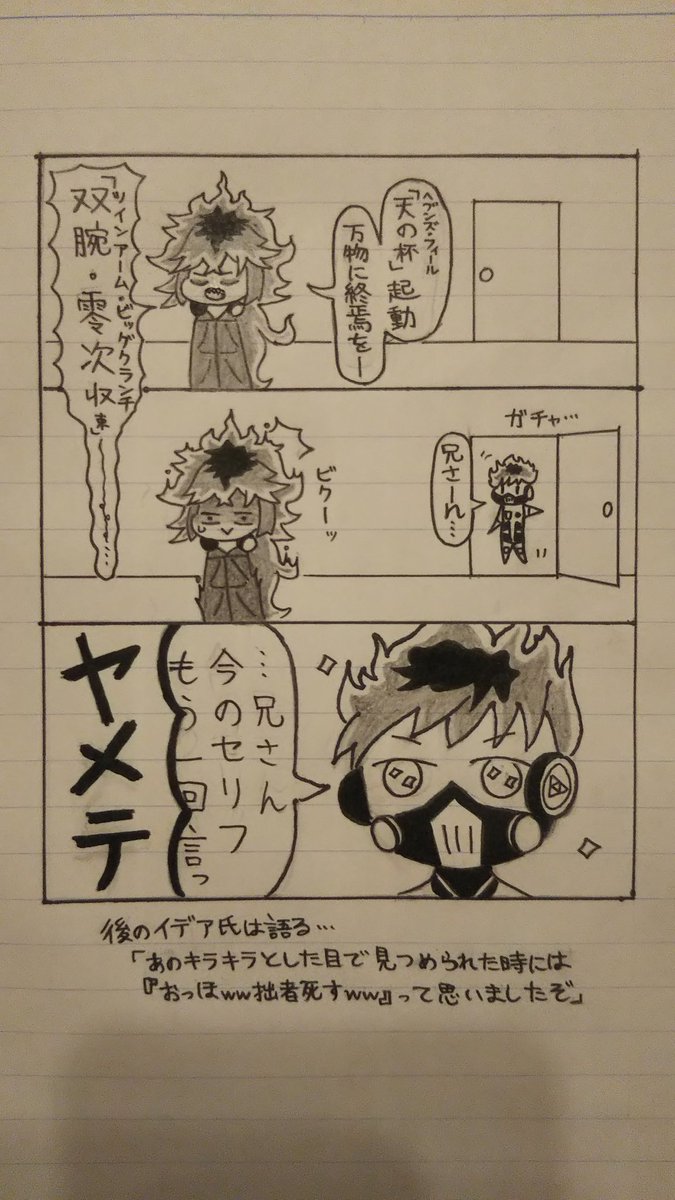 ヘブンズ・フィール
「天の杯」起動
万物に終焉をー
ツインアーム・ビッグクランチ
「双腕・零次収束」………
ガチャ…
兄さーん…
ビクーッ
…兄さん
今のセリフ
もう一回言っ
ヤメテ
後のイデア氏は語る…
「あのキラキラとした目で見つめられた時には
『おっほww拙者死すww』って思いましたぞ」